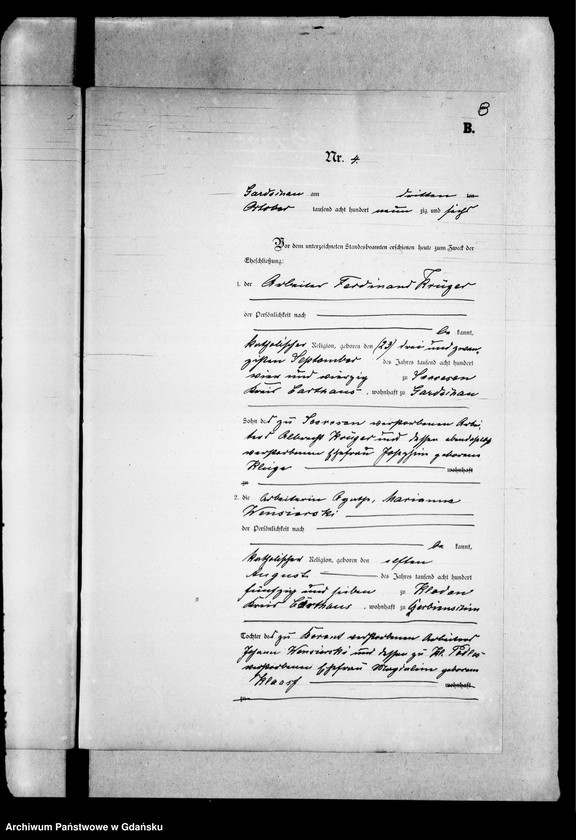 8
B.
Nr. 4.
am dritten
October tausend acht hundert neun zig und sechs
Vor dem unterzeichneten Standesbeamten erschienen heute zum Zweck der
Eheschließung:
1. der Arbeiter Ferdinand Krüger
der Persönlichkeit nach
be kannt,
katholischer Religion, geboren den (23) drei und zwan-
zigsten September des Jahres tausend acht hundert
vier und vierzig zu
Kreis Carthaus, wohnhaft zu
Sohn des zu verstorbenen Arbei-
ters Albrecht Krüger und dessen ebendaselbst
verstorbenen Ehefrau Josephine geborene
wohnhaft
zu
2. die Arbeiterin Agathe, Marianna
Wensierski
der Persönlichkeit nach
be kannt,
katholischer Religion, geboren den elften
August des Jahres tausend acht hundert
fünfzig und sieben zu
Kreis Carthaus, wohnhaft zu
Tochter des zu Berent verstorbenen Arbeiters
Johann Wensierski und dessen zu Kl.
verstorbenen Ehefrau Magdalina geborene
wohnhaft
zu
Archiwum Państwowe w Gdańsku